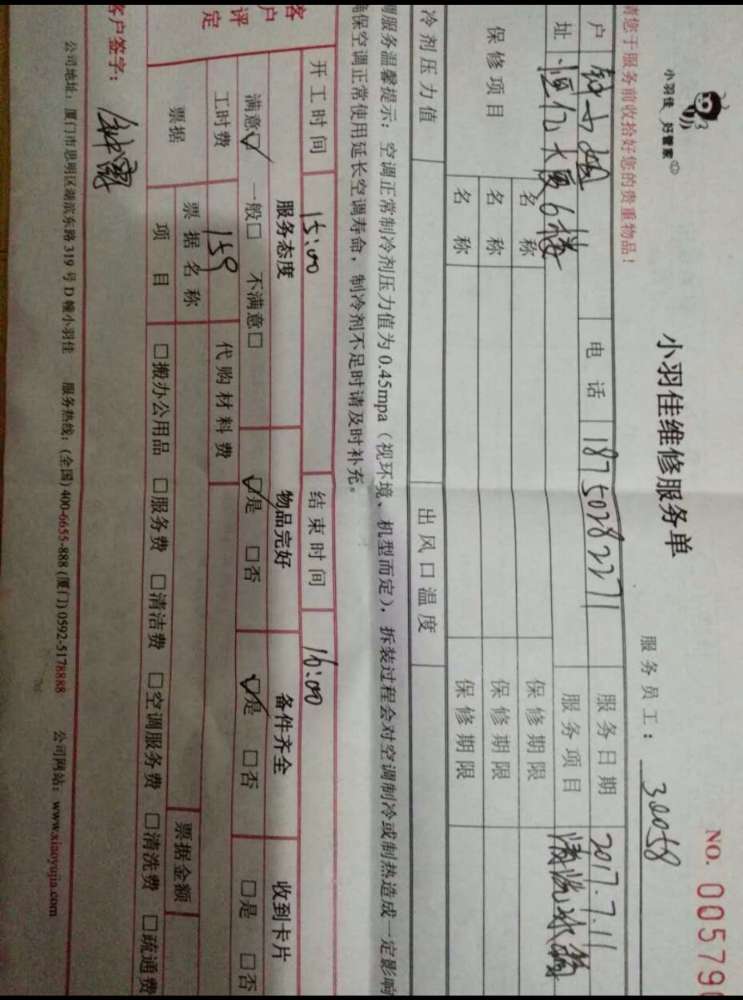 小羽佳 好管家
NO. 005790
小羽佳维修服务单
服务员工: 30058
请您于服务前收拾好您的贵重物品!
户 电话 18750282271 服务日期 2017.7.11
址 恒亿大厦6楼 服务项目 清洗冰箱
保修项目 名称 保修期限
名称 保修期限
名称 保修期限
冷剂压力值 出风口温度
调服务温馨提示:空调正常制冷剂压力值为0.45mpa(视环境、机型而定),拆装过程会对空调制冷或制热造成一定影响
确保空调正常使用延长空调寿命,制冷剂不足时请及时补充。
开工时间 15:00 结束时间 16:00
客户评定 服务态度 物品完好 备件齐全 收到卡片
满意☑ 一般□ 不满意□ ☑是 □否 ☑是 □否 □是 □否
工时费 159 代购材料费
票据 票据名称 票据金额
项目 □搬办公用品 □服务费 □清洁费 □空调服务费 □清洗费 □疏通费
客户签字:
公司地址:厦门市思明区湖滨东路319号D幢小羽佳 服务热线:(全国)400-6655-888 (厦门)0592-5178888 公司网站:www.xiaoyujia.com